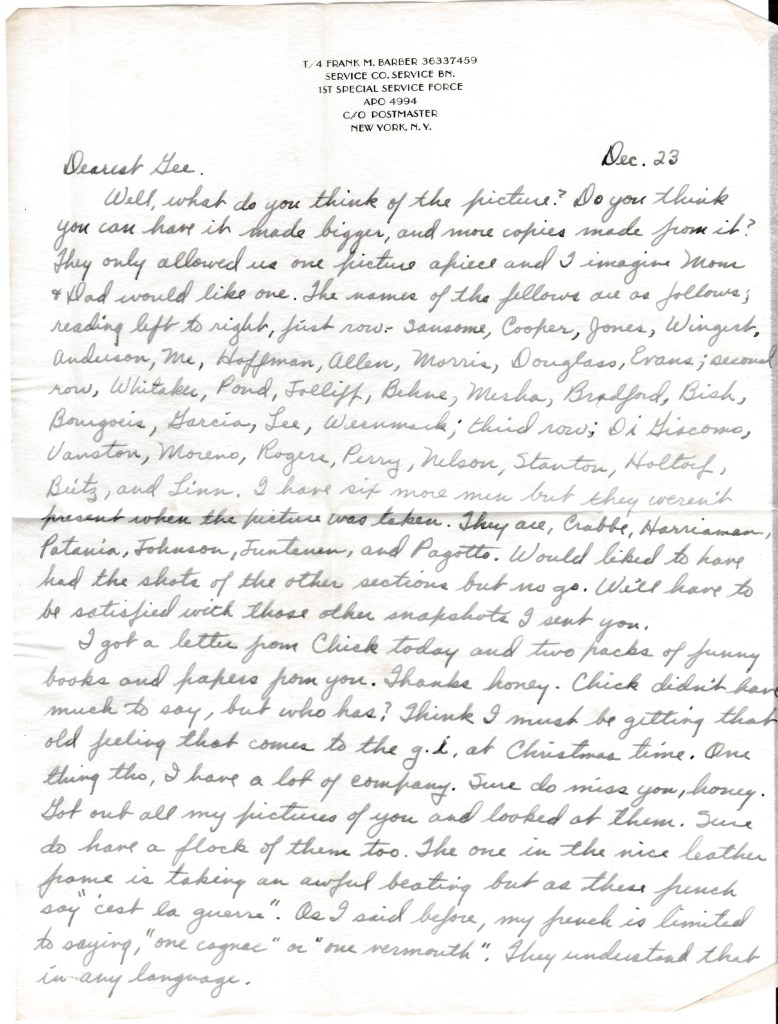 T/4 FRANK M. BARBER 36337459
SERVICE CO. SERVICE BN.
1ST SPECIAL SERVICE FORCE
APO 4994
C/O POSTMASTER
NEW YORK, N. Y.
Dec. 23
Dearest Gee.
Well, what do you think of the picture? Do you think
you can have it made bigger, and more copies made from it?
They only allowed us one picture apiece and I imagine Mom
& Dad would like one. The names of the fellows are as follows;
reading left to right, first row:- Sansome, Cooper, Jones, Wingert,
Anderson, Me, Hoffman, Allen, Morris, Douglass, Evans; second
row, Whitaker, Pond, Jolliff, Behne, Mersha, Bradford, Bish,
Bourgois, Garcia, Lee, Wernmack; third row; Di Giacomo,
Vanston, Moreno, Rogers, Perry, Nelson, Stanton, Holtorf,
Beitz, and Linn. I have six more men but they weren't
present when the picture was taken. They are, Crabbe, Harrisman,
Patania, Johnson, Juntenen, and Pagotto. Would liked to have
had the shots of the other sections but no go. We'll have to
be satisfied with those other snapshots I sent you.
I got a letter from Chick today and two packs of funny
books and papers from you. Thanks honey. Chick didn't have
much to say, but who has? Think I must be getting that
old feeling that comes to the g.i. at Christmas time. One
thing tho, I have a lot of company. Sure do miss you, honey.
Got out all my pictures of you and looked at them. Sure
do have a flock of them too. The one in the nice leather
frame is taking an awful beating but as these french
say "c'est la guerre". As I said before, my french is limited
to saying, "one cognac" or "one vermouth". They understand that
in any language.